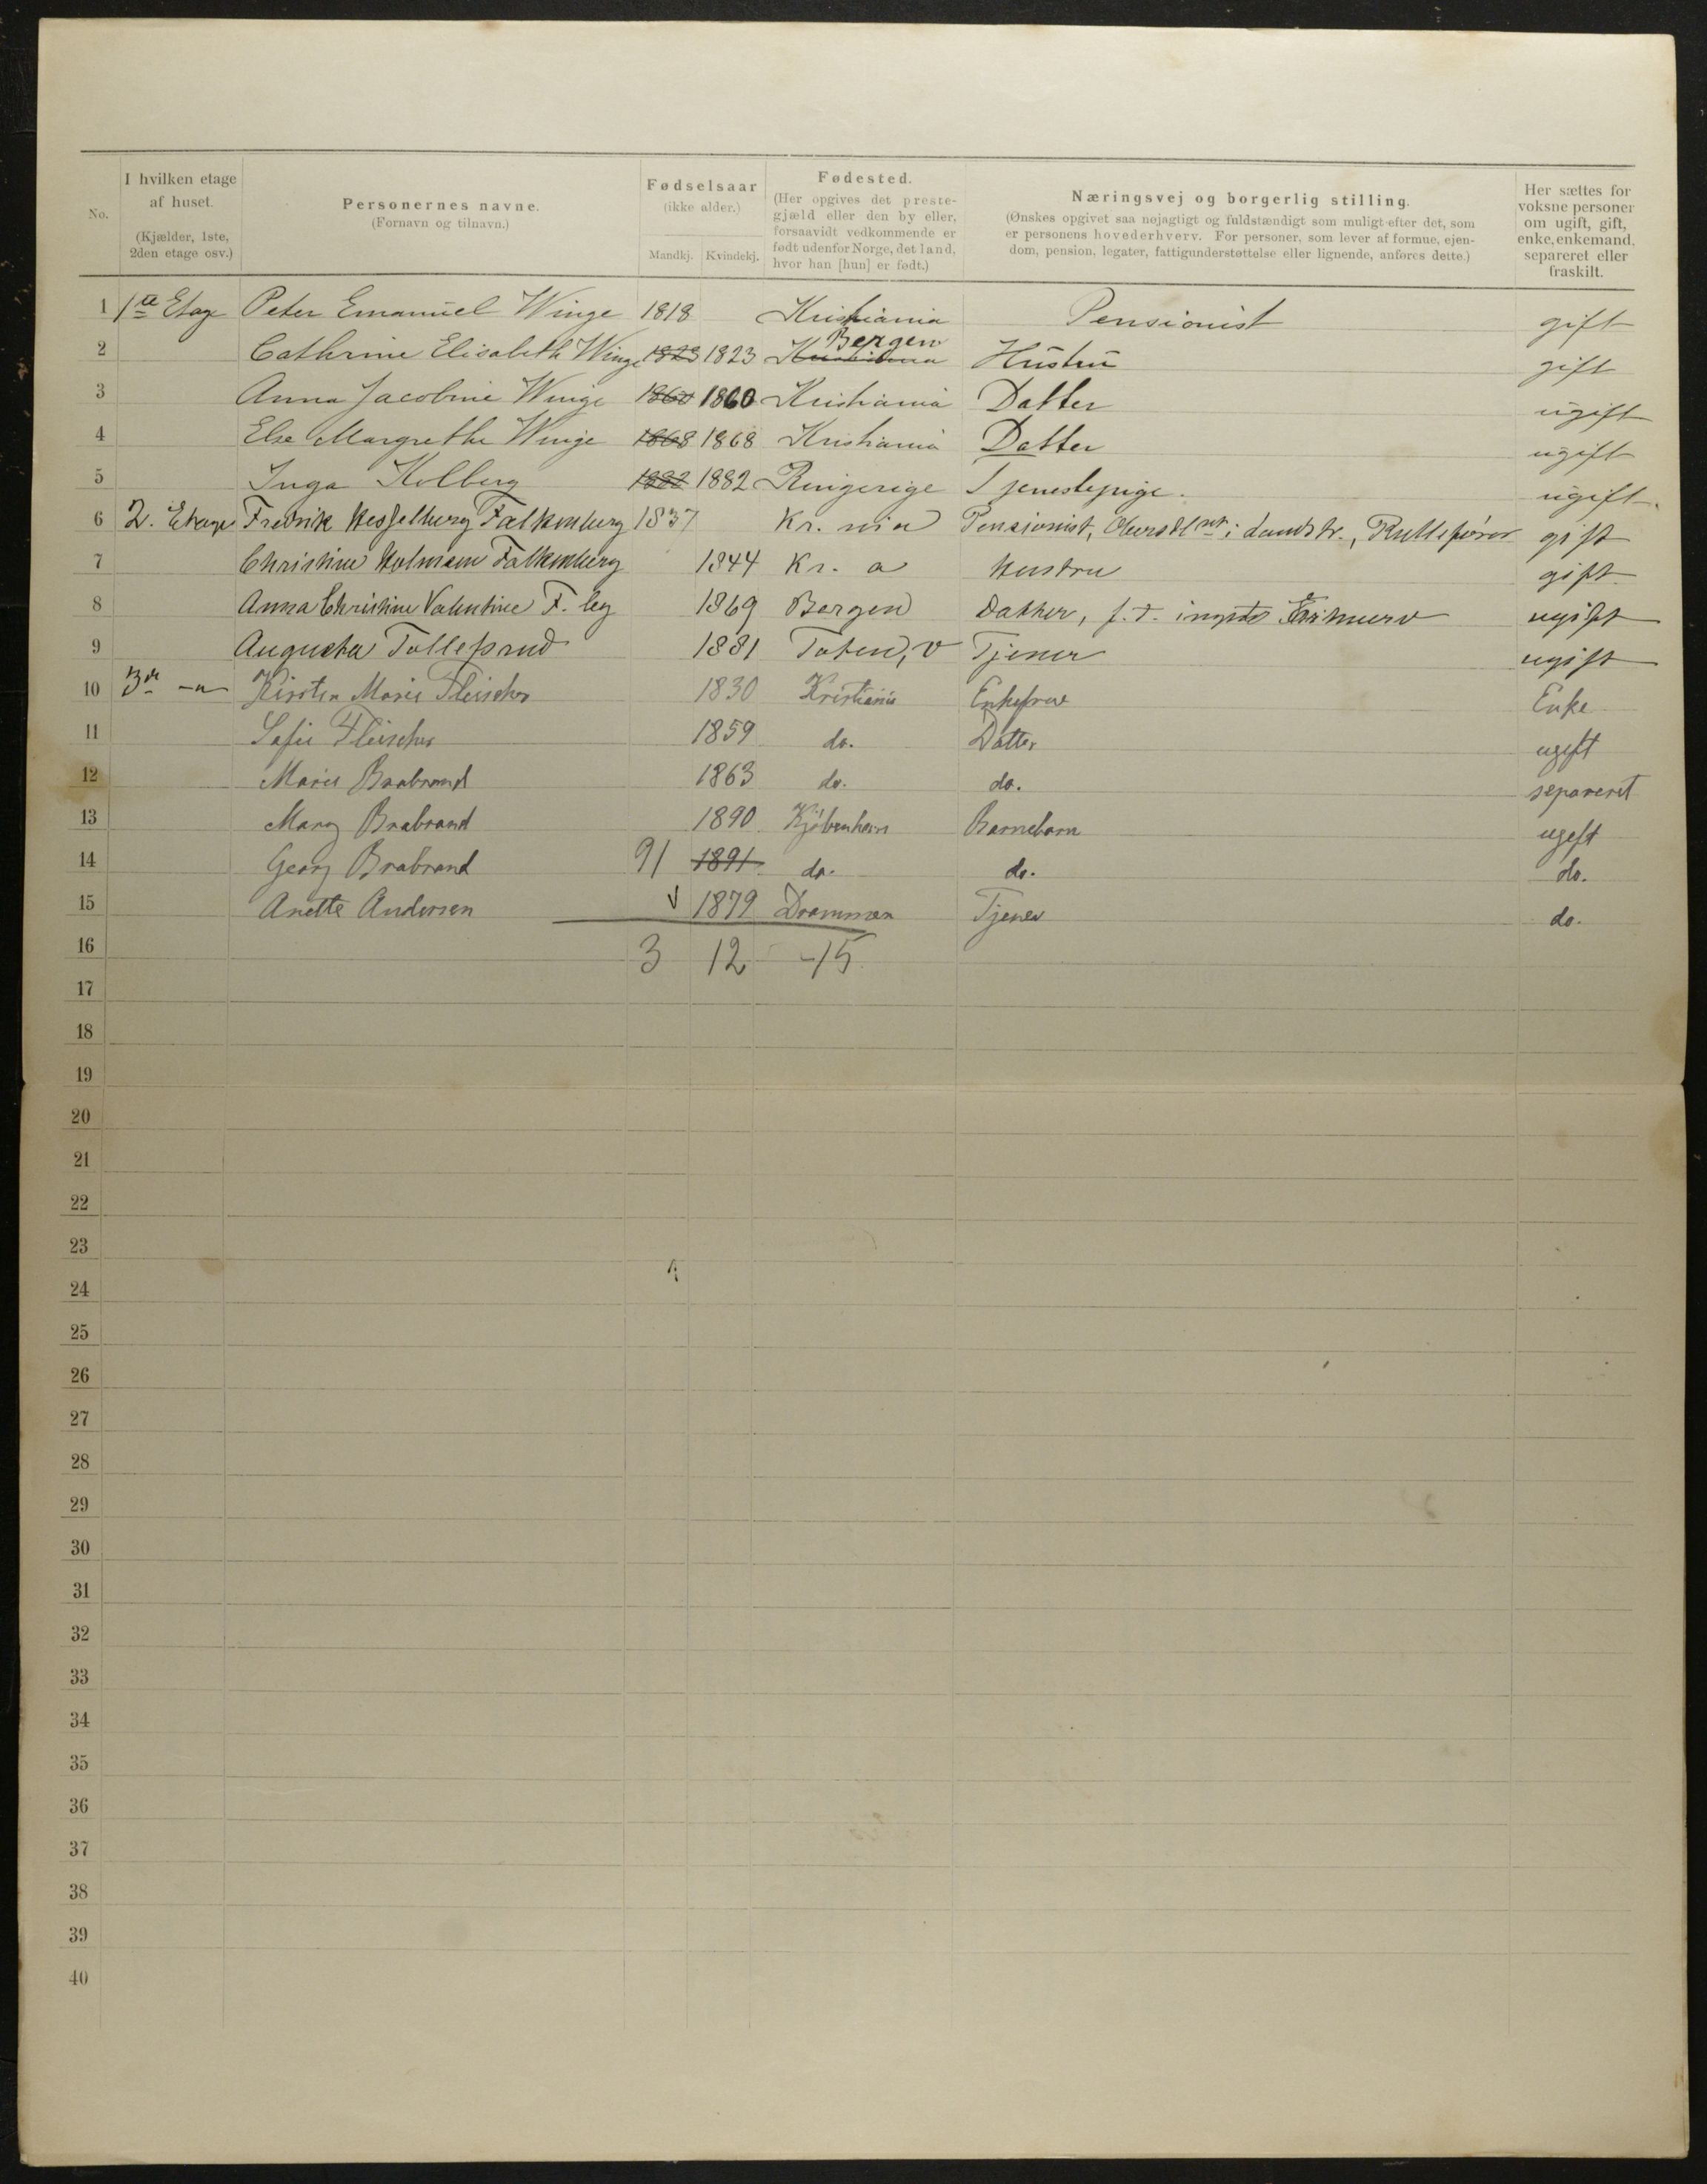 No.
I hvilken etage af huset. (Kjælder, 1ste, 2den etage osv.)
Personernes navne. (Fornavn og tilnavn.)
Fødselsaar (ikke alder.) Mandkj. Kvindekj.
Fødested. (Her opgives det prestegjæld eller den by eller, forsaavidt vedkommende er født udenfor Norge, det land, hvor han [hun] er født.)
Næringsvej og borgerlig stilling. (Ønskes opgivet saa nøjagtigt og fuldstændigt som muligt efter det, som er personens hovederhverv. For personer, som lever af formue, ejendom, pension, legater, fattigunderstøttelse eller lignende, anføres dette.)
Her sættes for voksne personer om ugift, gift, enke, enkemand, separeret eller fraskilt.
1 1ste Etage Peter Emanuel Winge 1818 Kristiania Pensionist gift
2 Cathrine Elisabeth Winge 1823 1823 Kristiania Bergen Hustru gift
3 Anna Jacobine Winge 1860 1860 Kristiania Datter ugift
4 Else Margrethe Winge 1868 1868 Kristiania Datter ugift
5 Inga Kolberg 1882 1882 Ringerige Tjenestepige. ugift.
6 2. Etage Fredrik Hesselberg Falkenberg 1837 Kr. nia Pensjonist, Oberstltnt i landstr., Rullefører gift
7 Christine Holmsen Falkenberg 1844 Kr. a Hustru gift
8 Anna Christine Valentine F. beg 1869 Bergen Datter, f. t. ugift
9 Augusta Tollefsrud 1881 Toten, V Tjener ugift
10 3die Kirsten Marie Fleischer 1830 Kristiania Enkefrue Enke
11 Sofie Fleischer 1859 do. Datter ugift
12 Marie Brabrand 1863 do. do. separeret
13 Mary Brabrand 1890 Kjøbenhavn Barnebarn ugift
14 Georg Brabrand 91 1891 do. do. do.
15 Anette Andersen 1879 Drammen Tjener do.
16 3 12 -15
17
18
19
20
21
22
23
24
25
26
27
28
29
30
31
32
33
34
35
36
37
38
39
40